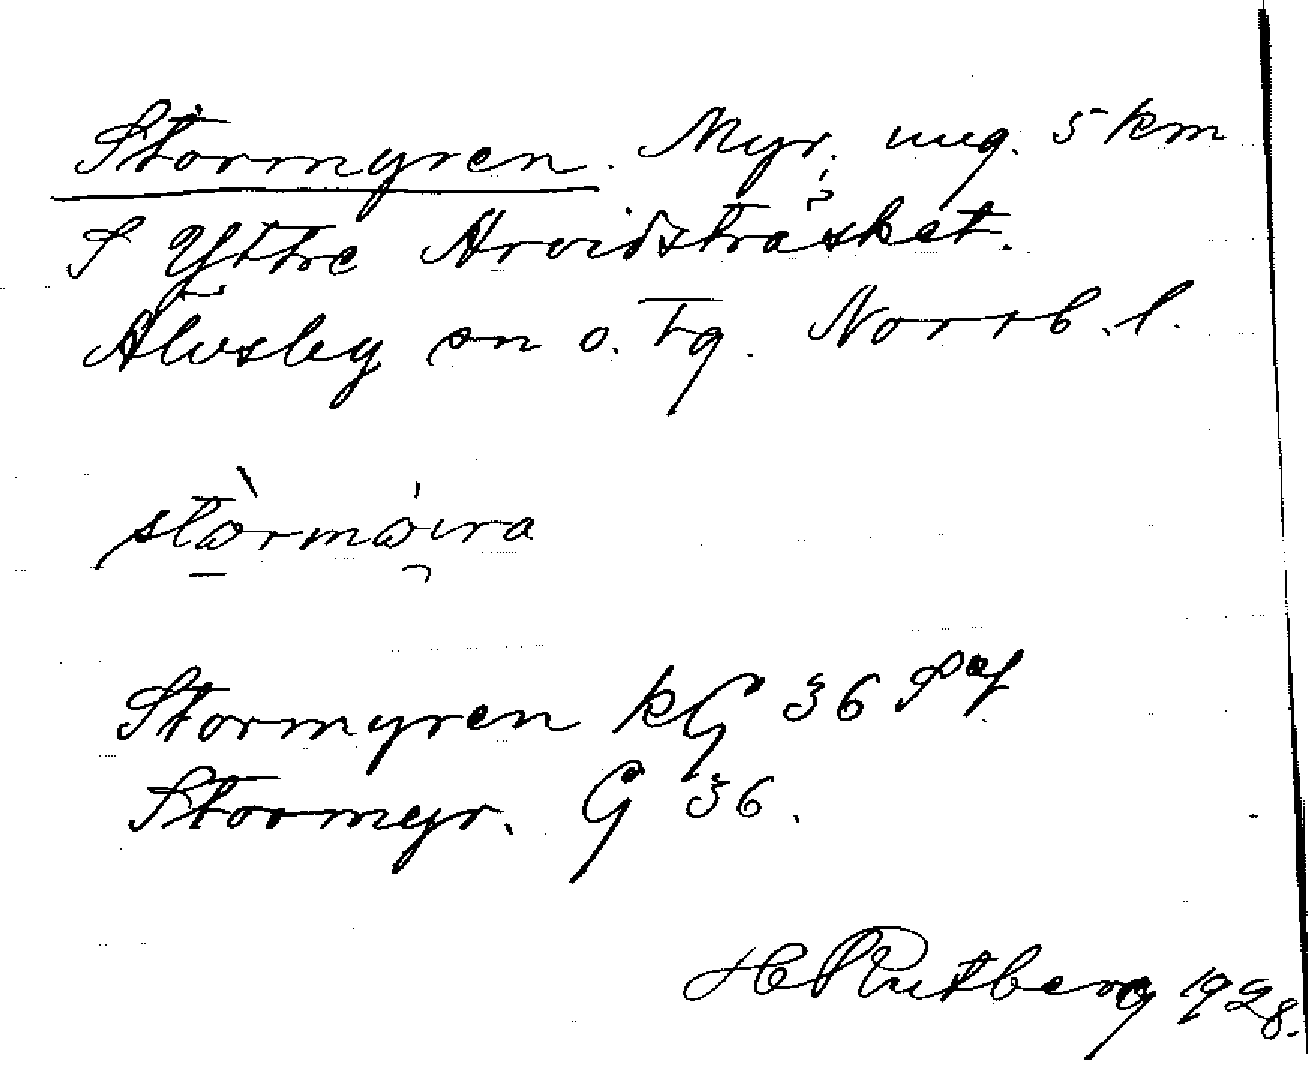 Stormyren. Myr, ung. 5 km
S Yttre Arvidsträsket.
Älvsby sn o. tg. Norrb. l.
stòrmɷira
Stormyren kG 36 Saf
Stormyr. G 36.
H Rutberg 1928.